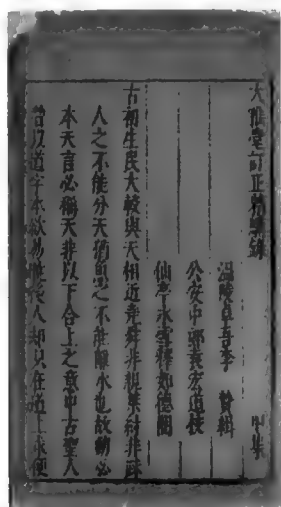 大隱堂訂正錄　集
溫陵卓吾李　贄輯
公安中郎袁宏道校
仙亭冰雪釋如德閱
古初生民大較與天相近堯舜非親桀紂非疎
人之不能分天猶魚之不能離水也故動必
本天言必稱天非以下合上之意中古聖人
以道字本欲易人却只在道上求便